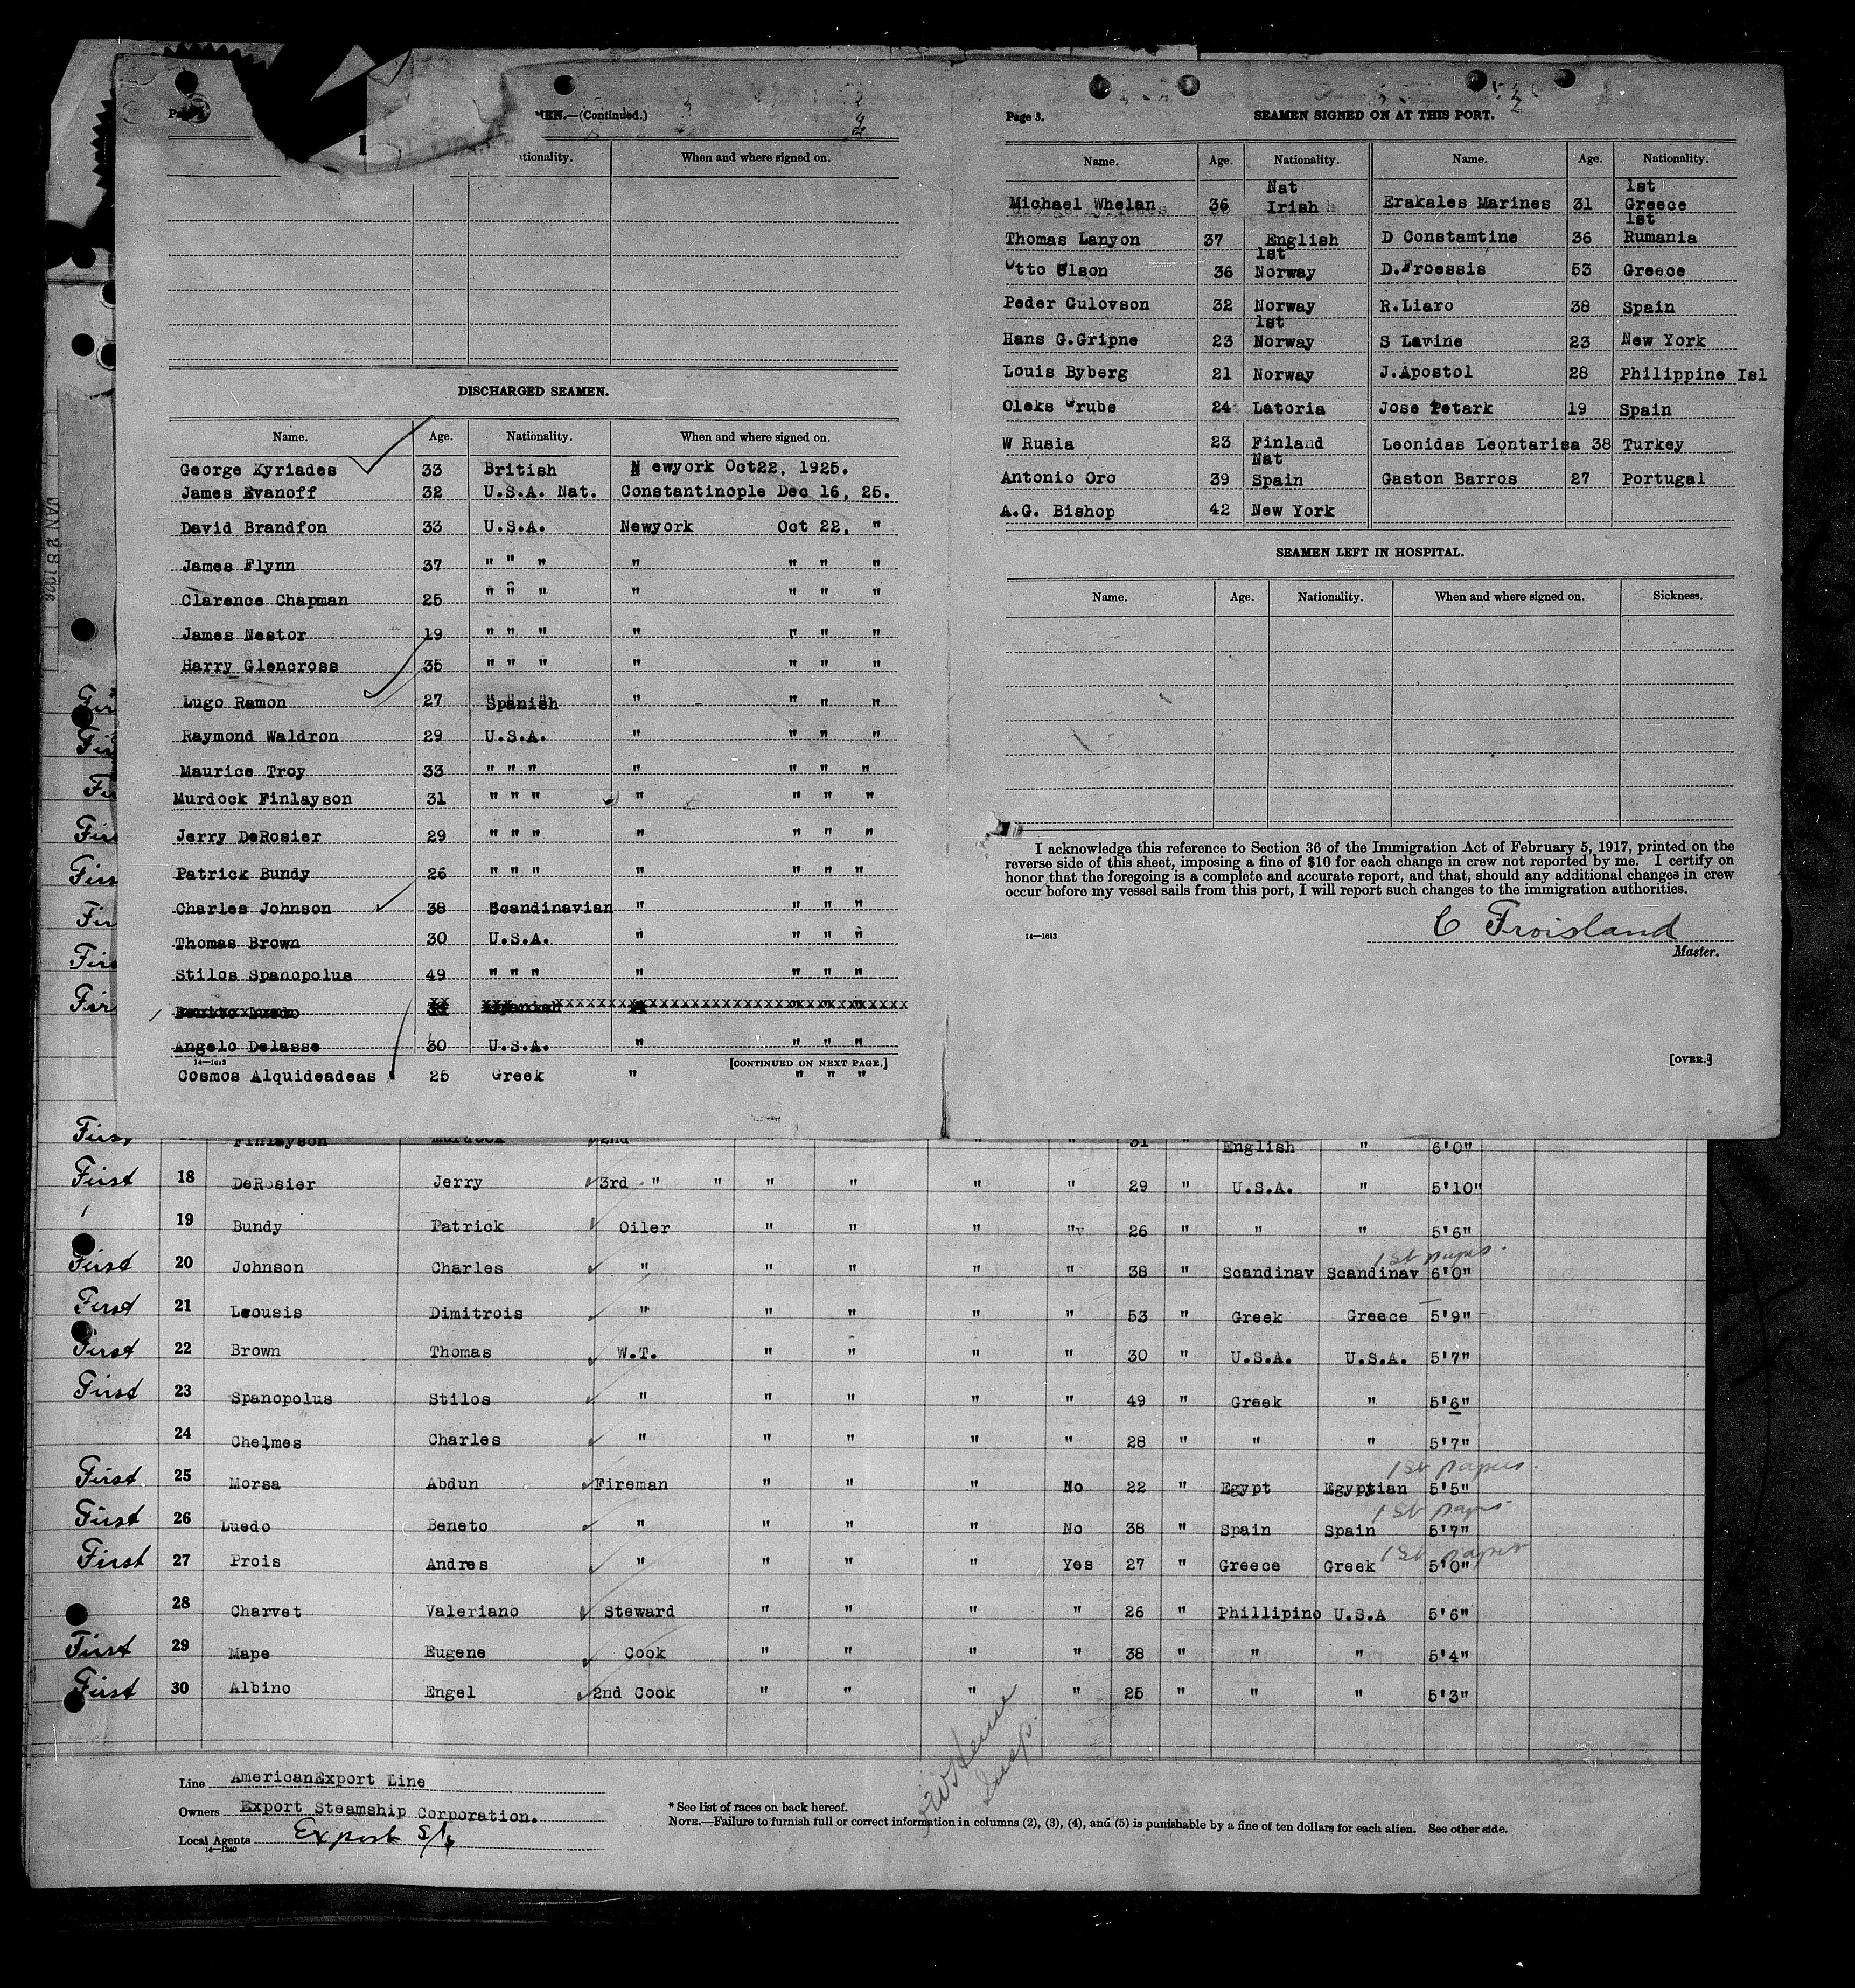 MEN.—(Continued.)
tionality. When and where signed on.
DISCHARGED SEAMEN.
Name. Age. Nationality. When and where signed on.
George Kyriades 33 British Newyork Oct22, 1925.
James Evanoff 32 U.S.A. Nat. Constantinople Dec 16, 25.
David Brandfon 33 U.S.A. Newyork Oct 22, "
James Flynn 37 " " " " " " "
Clarence Chapman 25 " " " " " " "
James Nestor 19 " " " " " " "
Harry Glencross 35 " " " " " " "
Lugo Ramon 27 Spanish " " " "
Raymond Waldron 29 U.S.A. " " " "
Maurice Troy 33 " " " " " " "
Murdock Finlayson 31 " " " " " " "
Jerry DeRosier 29 " " " " " " "
Patrick Bundy 26 " " " " " " "
Charles Johnson 38 Scandinavian " " " "
Thomas Brown 30 U.S.A. " " " "
Stilos Spanopolus 49 " " " " " " "
Angelo Delasse 30 U.S.A. " " " "
14—1613 [CONTINUED ON NEXT PAGE.]
Cosmos Alquideadeas 25 Greek " " " "
Page 3. SEAMEN SIGNED ON AT THIS PORT.
Name. Age. Nationality. Name. Age. Nationality.
Nat 1st
Michael Whelan 36 Irish Erakales Marines 31 Greece
1st
Thomas Lanyon 37 English D Constamtine 36 Rumania
1st
Otto Olson 36 Norway D.Froessis 53 Greece
Peder Gulovson 32 Norway R.Liaro 38 Spain
1st
Hans G.Gripne 23 Norway S Lavine 23 New York
Louis Byberg 21 Norway J.Apostol 28 Philippine Isl
Oleks Grube 24 Latoria Jose Petark 19 Spain
W Rusia 23 Finland Leonidas Leontarisa 38 Turkey
Nat
Antonio Oro 39 Spain Gaston Barros 27 Portugal
A.G. Bishop 42 New York
SEAMEN LEFT IN HOSPITAL.
Name. Age. Nationality. When and where signed on. Sickness.
I acknowledge this reference to Section 36 of the Immigration Act of February 5, 1917, printed on the
reverse side of this sheet, imposing a fine of $10 for each change in crew not reported by me. I certify on
honor that the foregoing is a complete and accurate report, and that, should any additional changes in crew
occur before my vessel sails from this port, I will report such changes to the immigration authorities.
C Froisland
14—1613 Master.
[OVER.]
First Finlayson Murdock 2nd " " " " 31 " English " 6'0"
First 18 DeRosier Jerry 3rd " " " " " " 29 " U.S.A. " 5'10"
19 Bundy Patrick Oiler " " " " 26 " " " 5'6"
1st papers.
First 20 Johnson Charles " " " " " 38 " Scandinav Scandinav 6'0"
First 21 Leousis Dimitrois " " " " " 53 " Greek Greece 5'9"
First 22 Brown Thomas W.T. " " " " 30 " U.S.A. U.S.A. 5'7"
First 23 Spanopolus Stilos " " " " " 49 " Greek " 5'6"
24 Chelmes Charles " " " " " 28 " " " 5'7"
1st papers.
First 25 Morsa Abdun Fireman " " " No 22 " Egypt Egyptian 5'5"
1st papers
First 26 Luedo Beneto " " " " No 38 " Spain Spain 5'7"
1st papers
First 27 Prois Andres " " " " Yes 27 " Greece Greek 5'0"
28 Charvet Valeriano Steward " " " " 26 " Phillipino U.S.A 5'6"
First 29 Mape Eugene Cook " " " " 38 " " " 5'4"
First 30 Albino Engel 2nd Cook " " " " 25 " " " 5'3"
Line AmericanExport Line
Owners Export Steamship Corporation.
Local Agents Export
14—1240
* See list of races on back hereof.
NOTE.—Failure to furnish full or correct information in columns (2), (3), (4), and (5) is punishable by a fine of ten dollars for each alien. See other side.